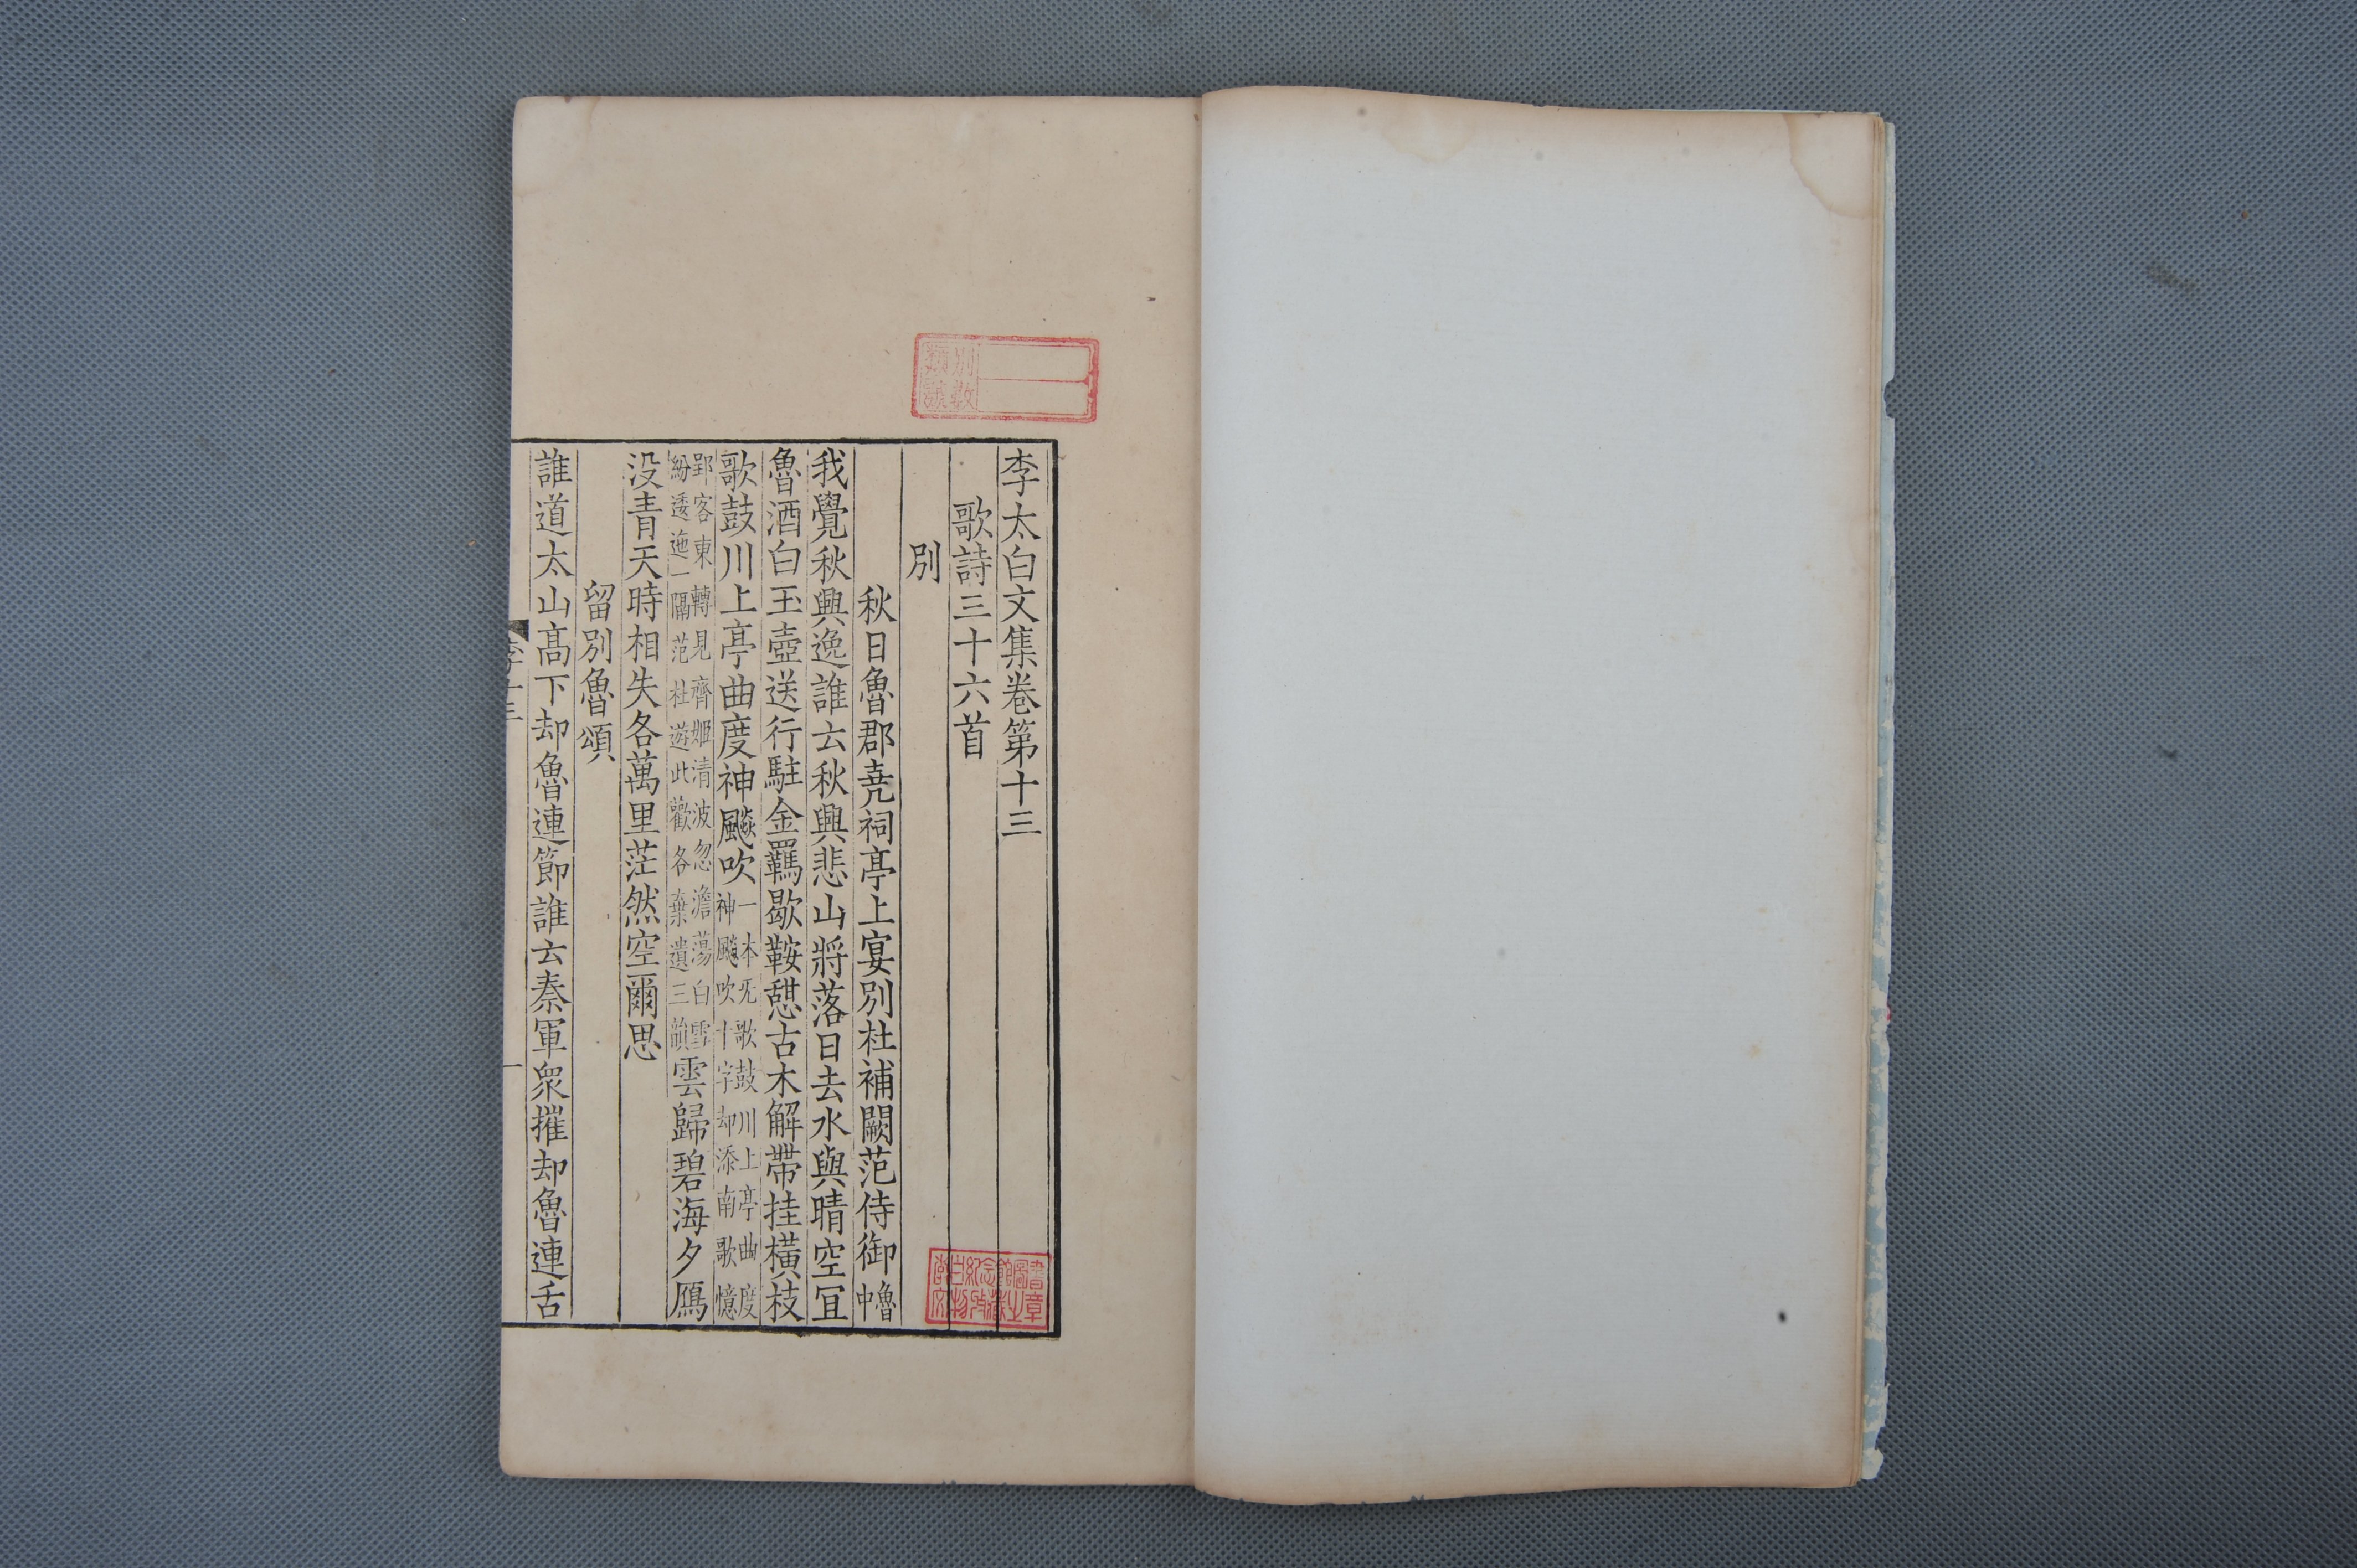 李太白文集卷第十三
歌詩三十六首
別
秋日魯郡堯祠亭上宴別杜補闕范侍御魯中
我覺秋興逸誰云秋興悲山將落日去水與晴空冝
魯酒白玉壺送行駐金羈歇鞍憩古木解帶挂橫枝
歌鼓川上亭曲度神飈吹一本无歌鼓川上亭曲度神飈吹十字却添南歌憶
郢客東轉見齊姬清波忽澹蕩白雪紛逶迤一隔范杜遊此歡各棄遺三韻雲歸碧海夕鴈
没青天時相失各萬里茫然空爾思
留別魯頌
誰道太山髙下却魯連節誰云秦軍衆摧却魯連舌
李十三
一
別類
書章
李白紀念館圖
文物收藏之